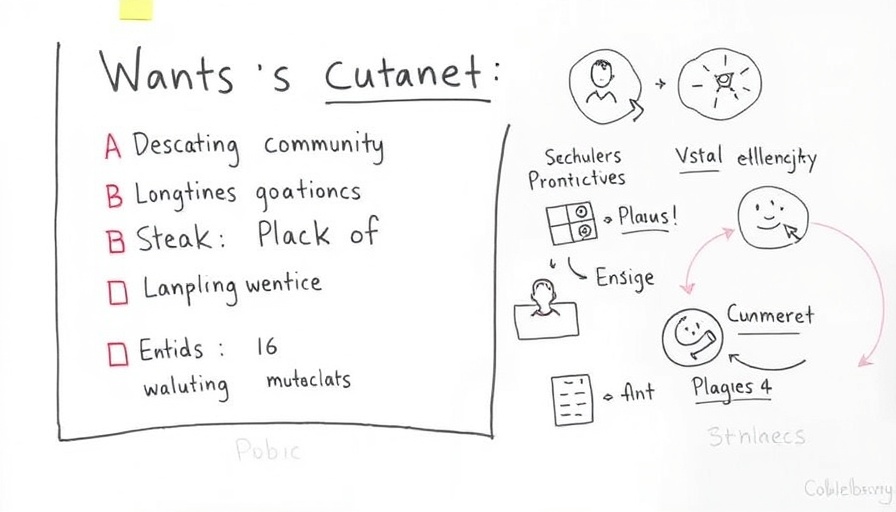 Wants 's Cutanet:
A Descating community
B Longtines goationcs
B Steak: Plack of
Lanpling wentice
Entids : 16
waluting mutaclats
Pobic
Sechulers
Prontictves
Vstal
Plaus!
Ensige
Cunmeret
Ant
Plagies 4
3thlaecs